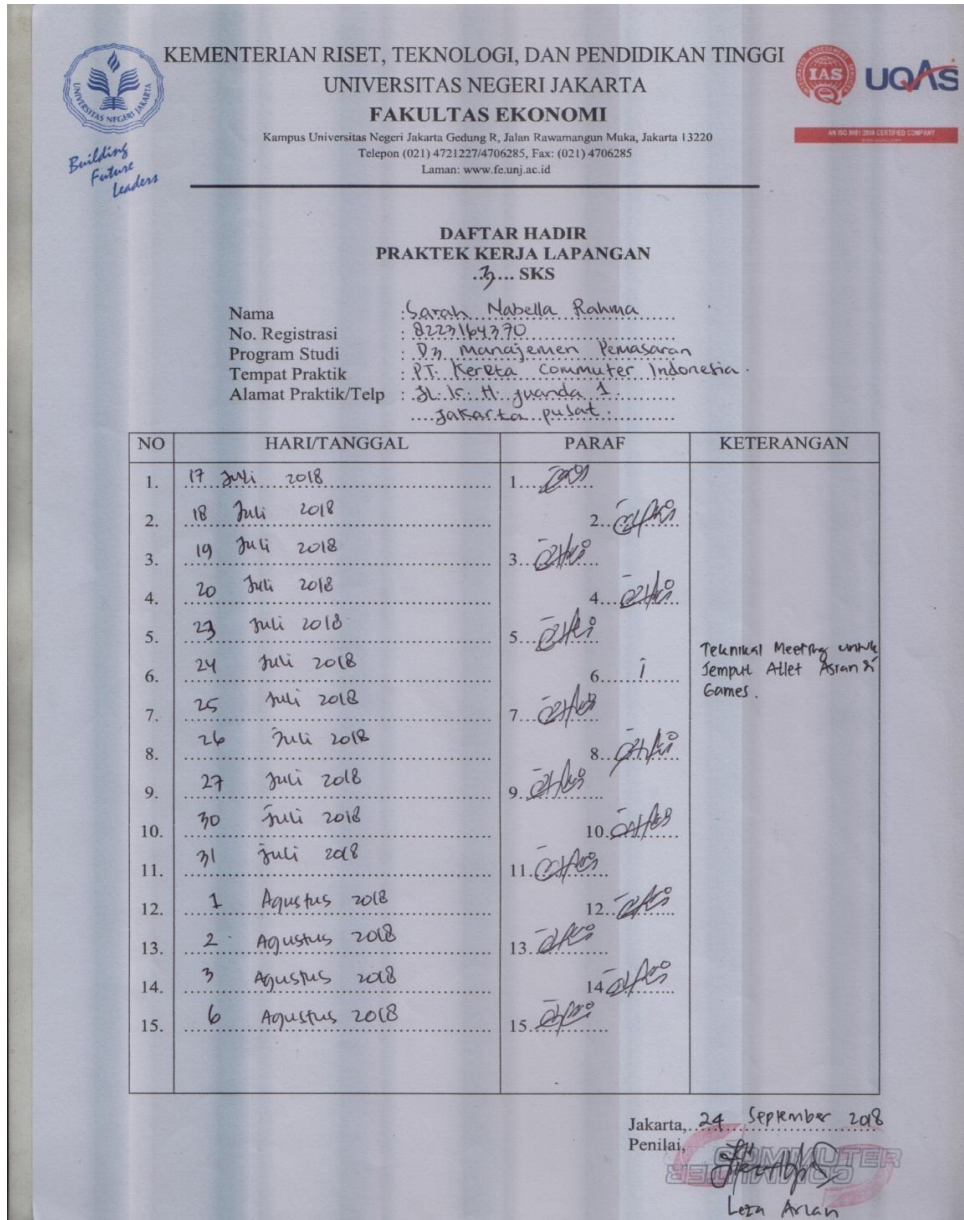 KEMENTERIAN RISET, TEKNOLOGI, DAN PENDIDIKAN TINGGI
UNIVERSITAS NEGERI JAKARTA
FAKULTAS EKONOMI
Kampus Universitas Negeri Jakarta Gedung R, Jalan Rawamangun Muka, Jakarta 13220
Telepon (021) 4721227/4706285, Fax: (021) 4706285
Laman: www.fe.unj.ac.id
UNIVERSITAS NEGERI JAKARTA
Building
Future
Leaders
IAS
UQAS
AN ISO 9001:2008 CERTIFIED COMPANY
DAFTAR HADIR
PRAKTEK KERJA LAPANGAN
.3... SKS
Nama : Sarah Nabella Rahma
No. Registrasi : 8223164370
Program Studi : D3 Manajemen Pemasaran
Tempat Praktik : PT. Kereta Commuter Indonesia.
Alamat Praktik/Telp : JL. Ir. H. Juanda 1.
Jakarta pusat.
NO HARI/TANGGAL PARAF KETERANGAN
1. 17 Juli 2018 1.
2. 18 Juli 2018 2.
3. 19 Juli 2018 3.
4. 20 Juli 2018 4.
5. 23 Juli 2018 5.
6. 24 Juli 2018 6. i
Teknikal Meeting untuk
Jemput Atlet Asian
Games.
7. 25 Juli 2018 7.
8. 26 Juli 2018 8.
9. 27 Juli 2018 9.
10. 30 Juli 2018 10.
11. 31 Juli 2018 11.
12. 1 Agustus 2018 12.
13. 2 Agustus 2018 13.
14. 3 Agustus 2018 14
15. 6 Agustus 2018 15.
Jakarta, 24 September 2018
Penilai,
COMMUTER
Leza Arlan